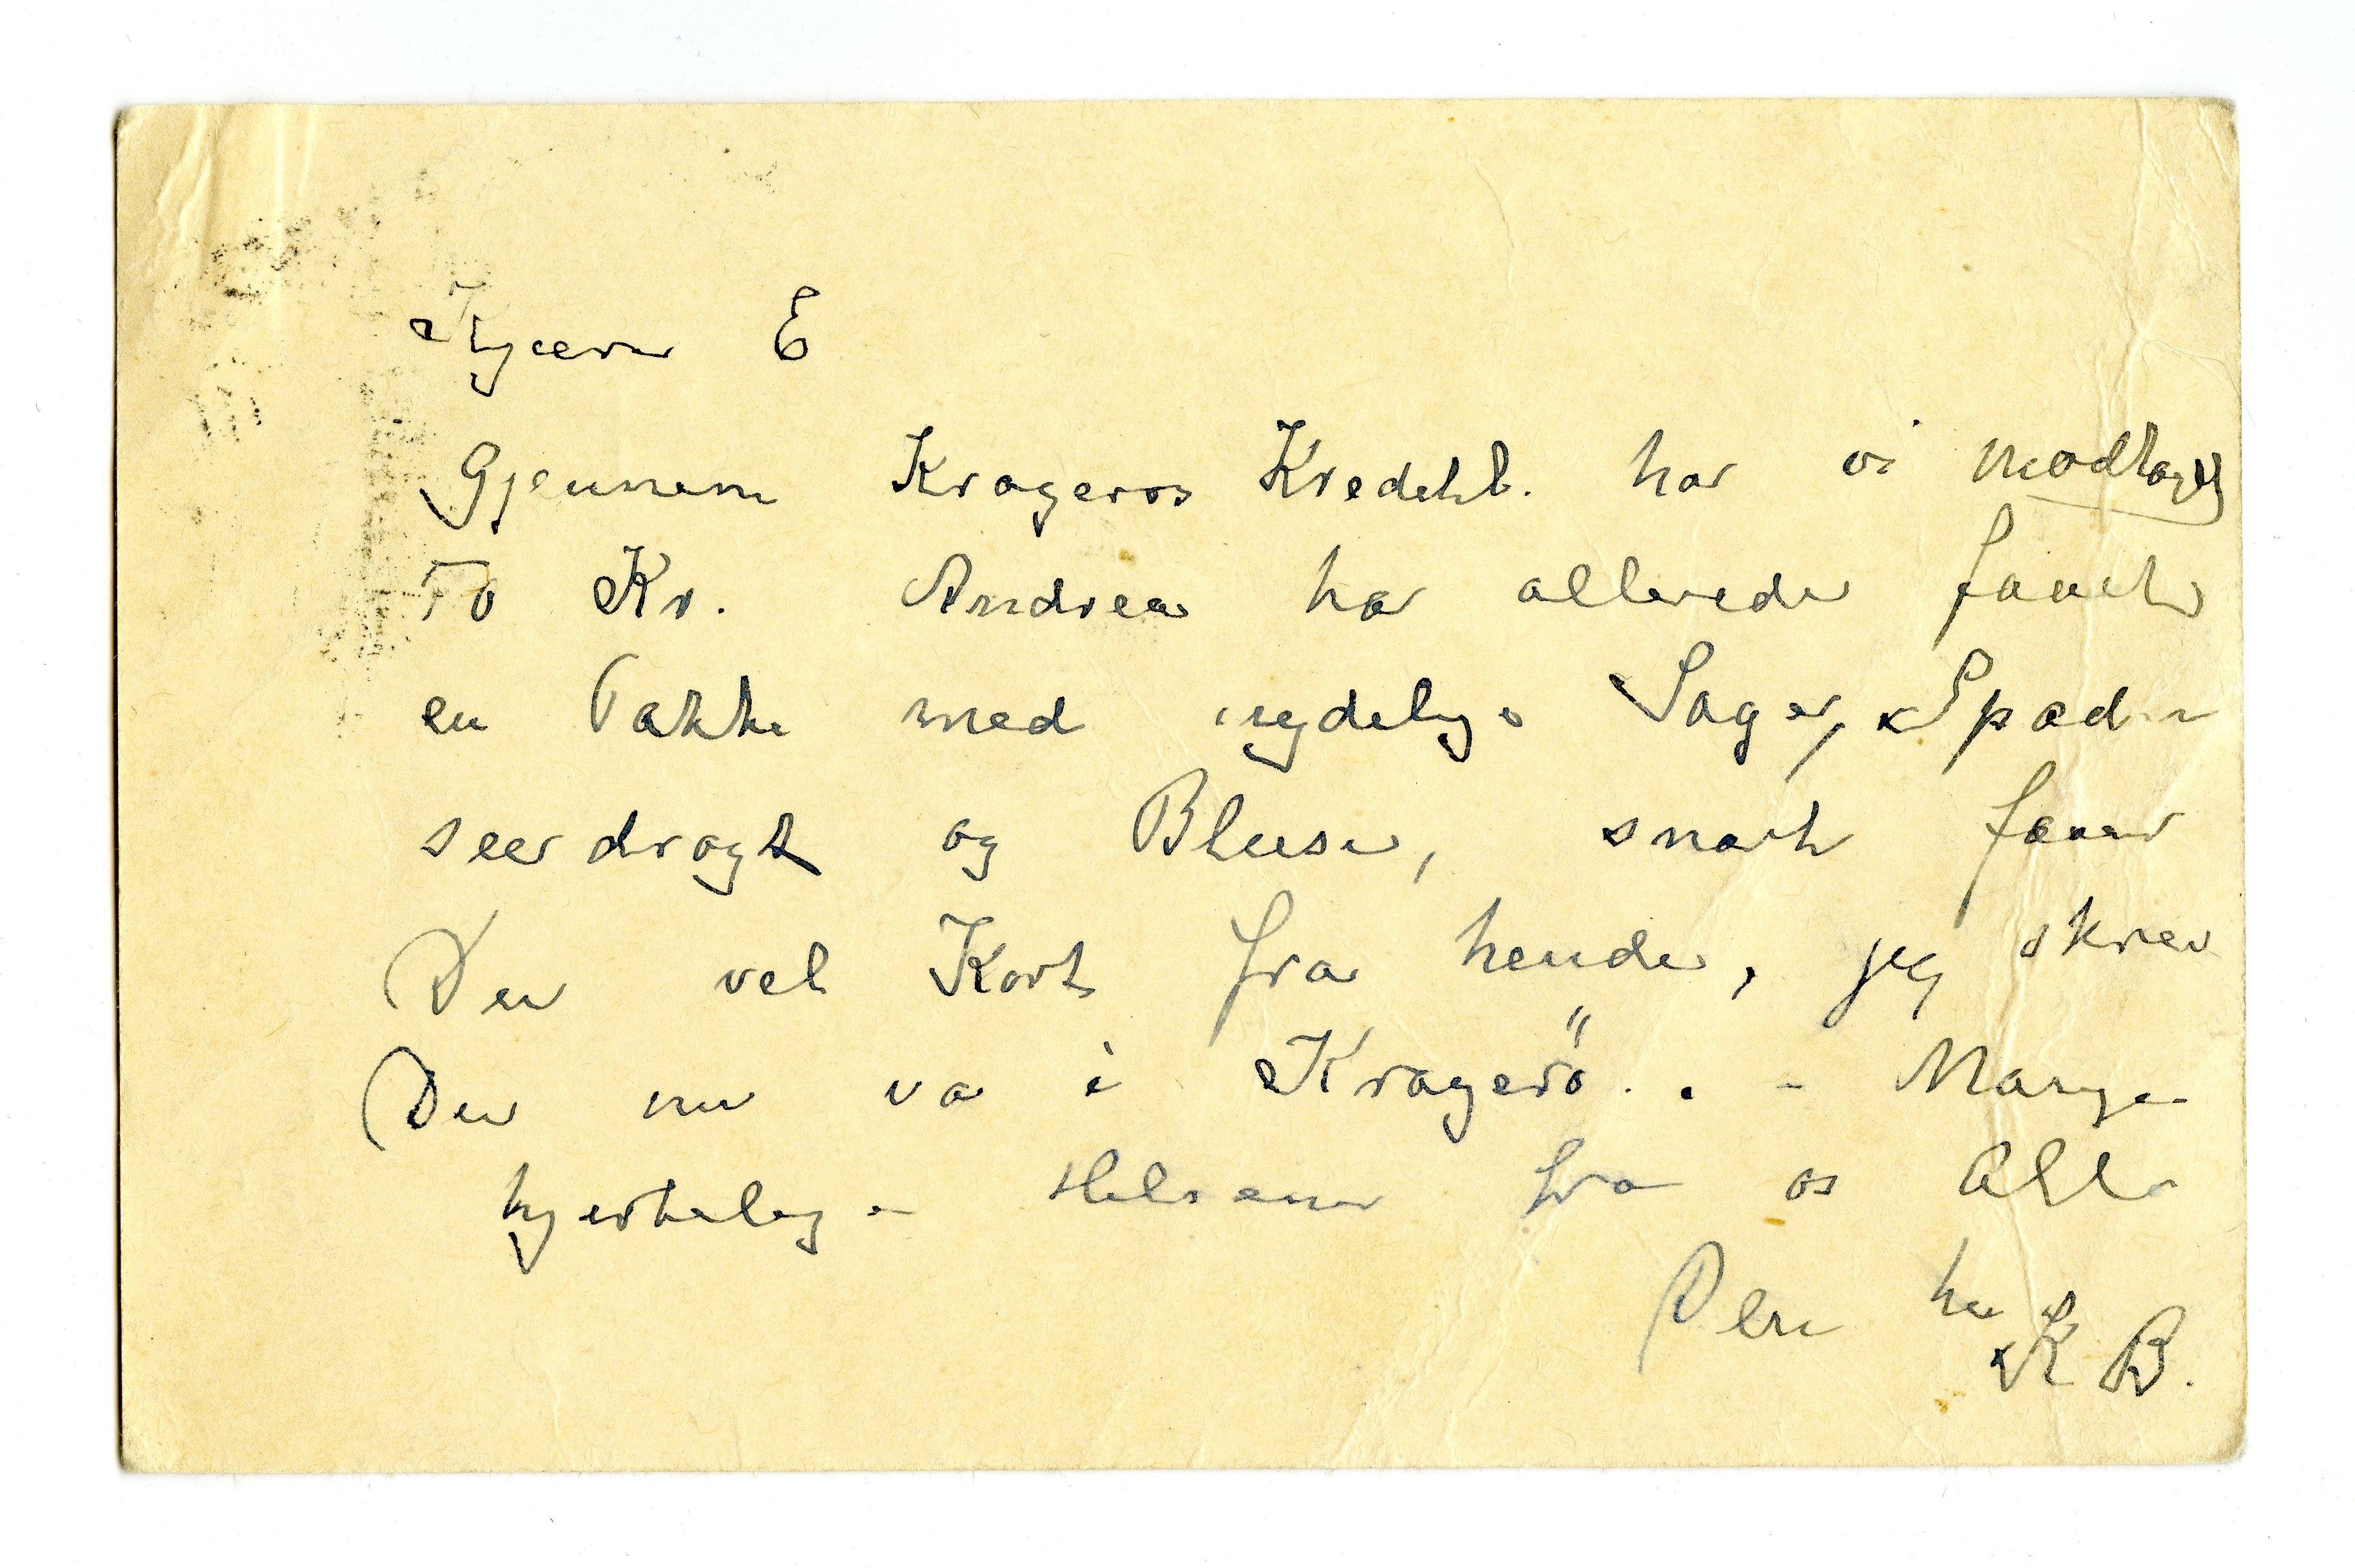 Kjære E
Gjennem Krageros Kreditb. har vi modtaget
70 Kr. Andrea ha allerede faaet
en Pakke med nydelige Sager, Spad
seerdragt og Bluse, snart faaer
Du vel Kort fra hende, jeg skrev
Du nu va i Kragerö. . - Mange
hjertelige Helsener fra os Alle
Den
K B.